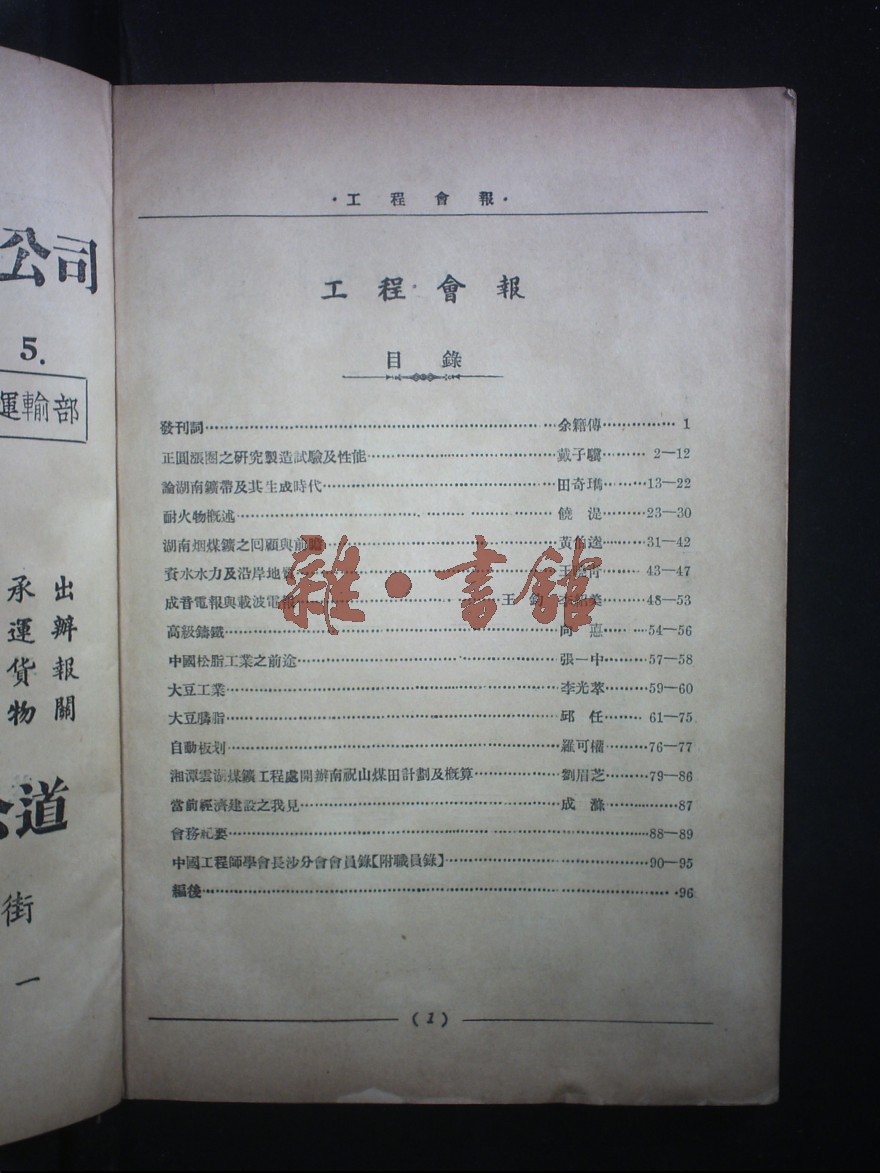 ·工程會報·
工程會報
目錄
發刊詞 余籍傳 1
正圓漲圈之研究製造試驗及性能 戴子驥 2—12
論湖南鑛帶及其生成時代 田奇㻪 13—22
耐火物概述 饒湜 23—30
湖南烟煤鑛之回顧與前瞻 黃伯逵 31—42
資水水力及沿岸地質 王 43—47
成音電報與載波電報 王鈞 李紹美 48—53
高級鑄鐵 向 54—56
中國松脂工業之前途 張一中 57—58
大豆工業 李光萃 59—60
大豆膦脂 邱任 61—75
自動板划 羅可權 76—77
湘潭雲湖煤鑛工程處開辦南祝山煤田計劃及概算 劉眉芝 79—86
當前經濟建設之我見 成滌 87
會務紀要 88—89
中國工程師學會長沙分會會員錄【附職員錄】 90—95
編後 96
(1)
公司
5.
運輸部
出辦報關
承運貨物
道
街
一
雜·書館